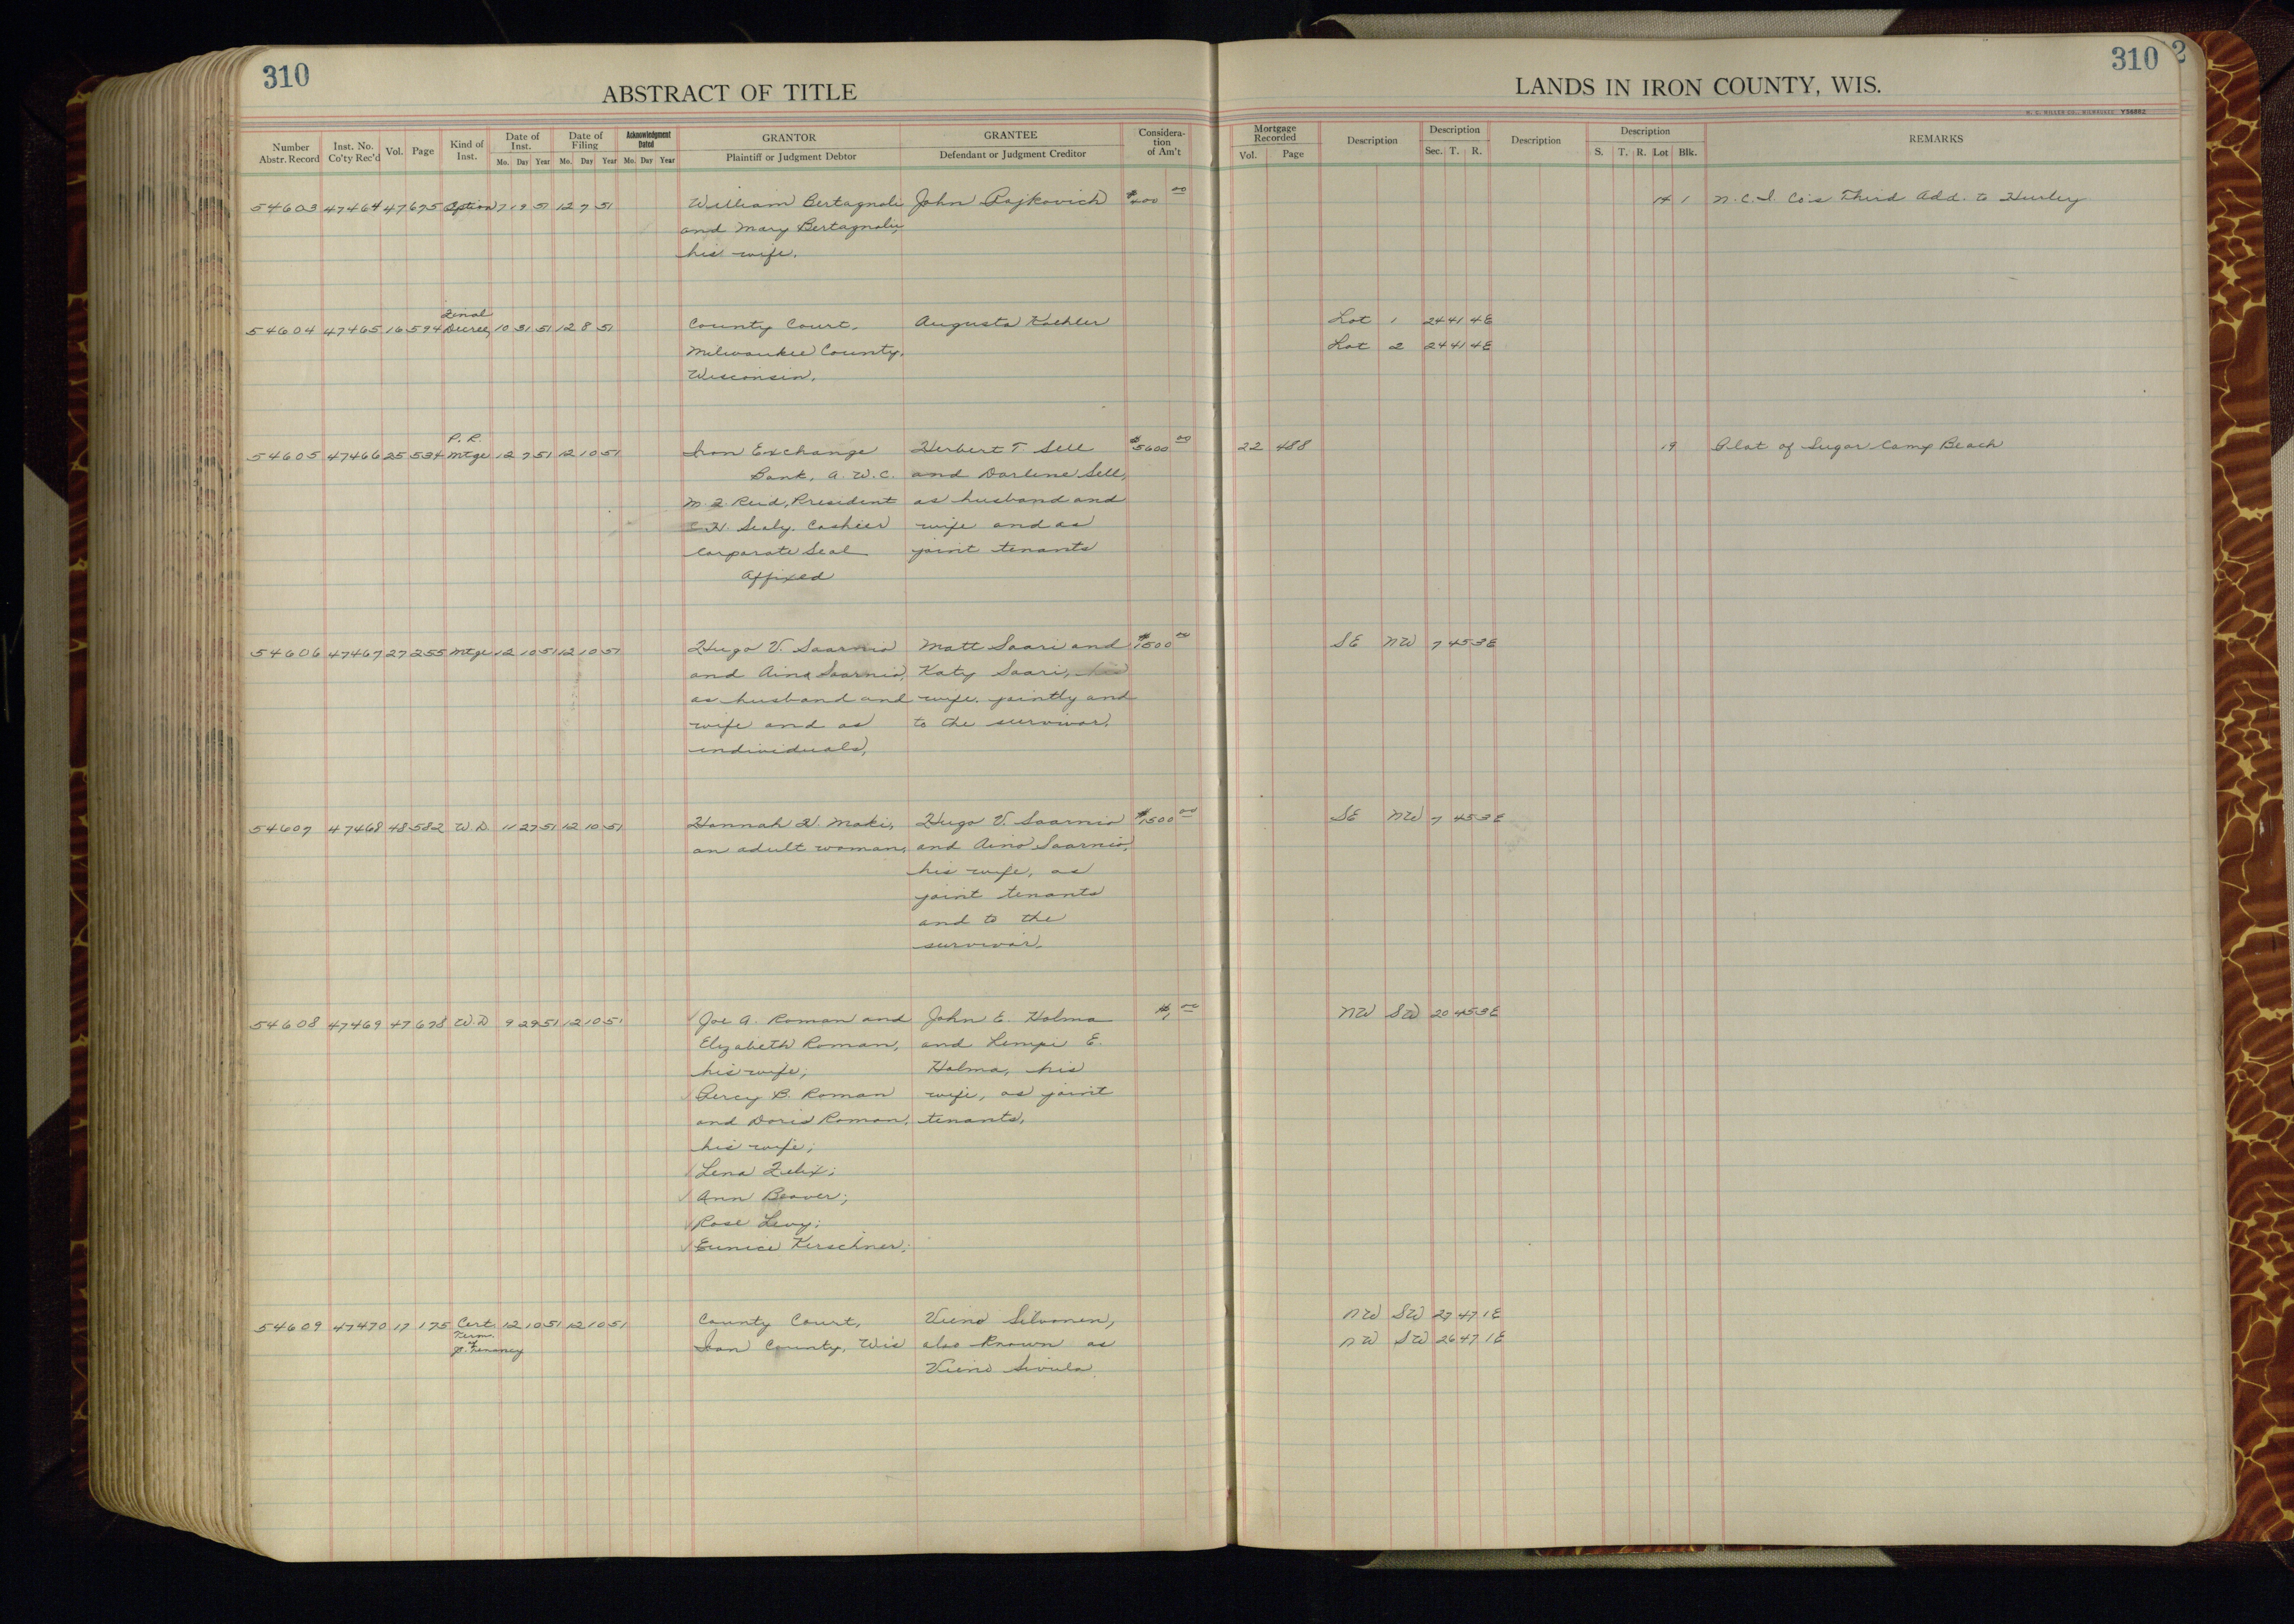 310
ABSTRACT OF TITLE
LANDS IN IRON COUNTY, WIS.
310 2
H. C. MILLER CO., MILWAUKEE Y56882
Number Abstr. Record
Inst. No. Co'ty Rec'd
Vol.
Page
Kind of Inst.
Date of Inst. Mo. Day Year
Date of Filing Mo. Day Year
Acknowledgment Dated Mo. Day Year
GRANTOR Plaintiff or Judgment Debtor
GRANTEE Defendant or Judgment Creditor
Considera-tion of Am't
Mortgage Recorded Vol. Page
Description
Description Sec. T. R.
Description
Description S. T. R. Lot Blk.
REMARKS
54603 47464 47 675 Option 7 19 51 12 7 51 William Bertagnoli John Rajkovich $ 00 14 1 N.C.I. Co's Third Add. to Hurley
and Mary Bertagnoli,
his wife.
Final
54604 47465 16 594 Decree, 10 31 51 12 8 51 County Court, Augusta Koehler Lot 1 24 41 4E
Milwaukee County, Lot 2 24 41 4E
Wisconsin.
P. R.
54605 47466 25 534 Mtge 12 7 51 12 10 51 Iron Exchange Herbert T. Sell $5600 00 22 488 19 Plat of Sugar Camp Beach
Bank, A.W.C. and Darlene Sell,
M. Z. Reid, President as husband and
Sealy, Cashier wife and as
Corporate Seal joint tenants
Affixed
54606 47467 27 255 Mtge 12 10 51 12 10 51 Hugo V. Saarnio Matt Saari and $1500 00 SE NW 7 45 3E
and Aino Saarnio, Katy Saari, his
as husband and wife, jointly and
wife and as to the survivor.
individuals,
54607 47468 48 582 W.D. 11 27 51 12 10 51 Hannah H. Maki, Hugo V. Saarnio $1500 00 SE NW 7 45 3E
an adult woman, and Aino Saarnio,
his wife, as
joint tenants
and to the
survivor.
54608 47469 47 678 W.D 9 29 51 12 10 51 Joe A. Roman and John E. Holma $1 00 NW SW 20 45 3E
Elizabeth Roman, and Lempi E.
his wife; Holma, his
Percy B. Roman wife, as joint
and Doris Roman, tenants,
his wife;
Lena Felix;
Ann Beaver;
Rose Levy;
Eunice Kerschner;
54609 47470 17 175 Cert. 12 10 51 12 10 51 County Court, Vieno Silvonen, NW SW 27 47 1E
Term. of Iron County, Wis also known as NW SW 26 47 1E
J. Tenancy Vieno Sivula